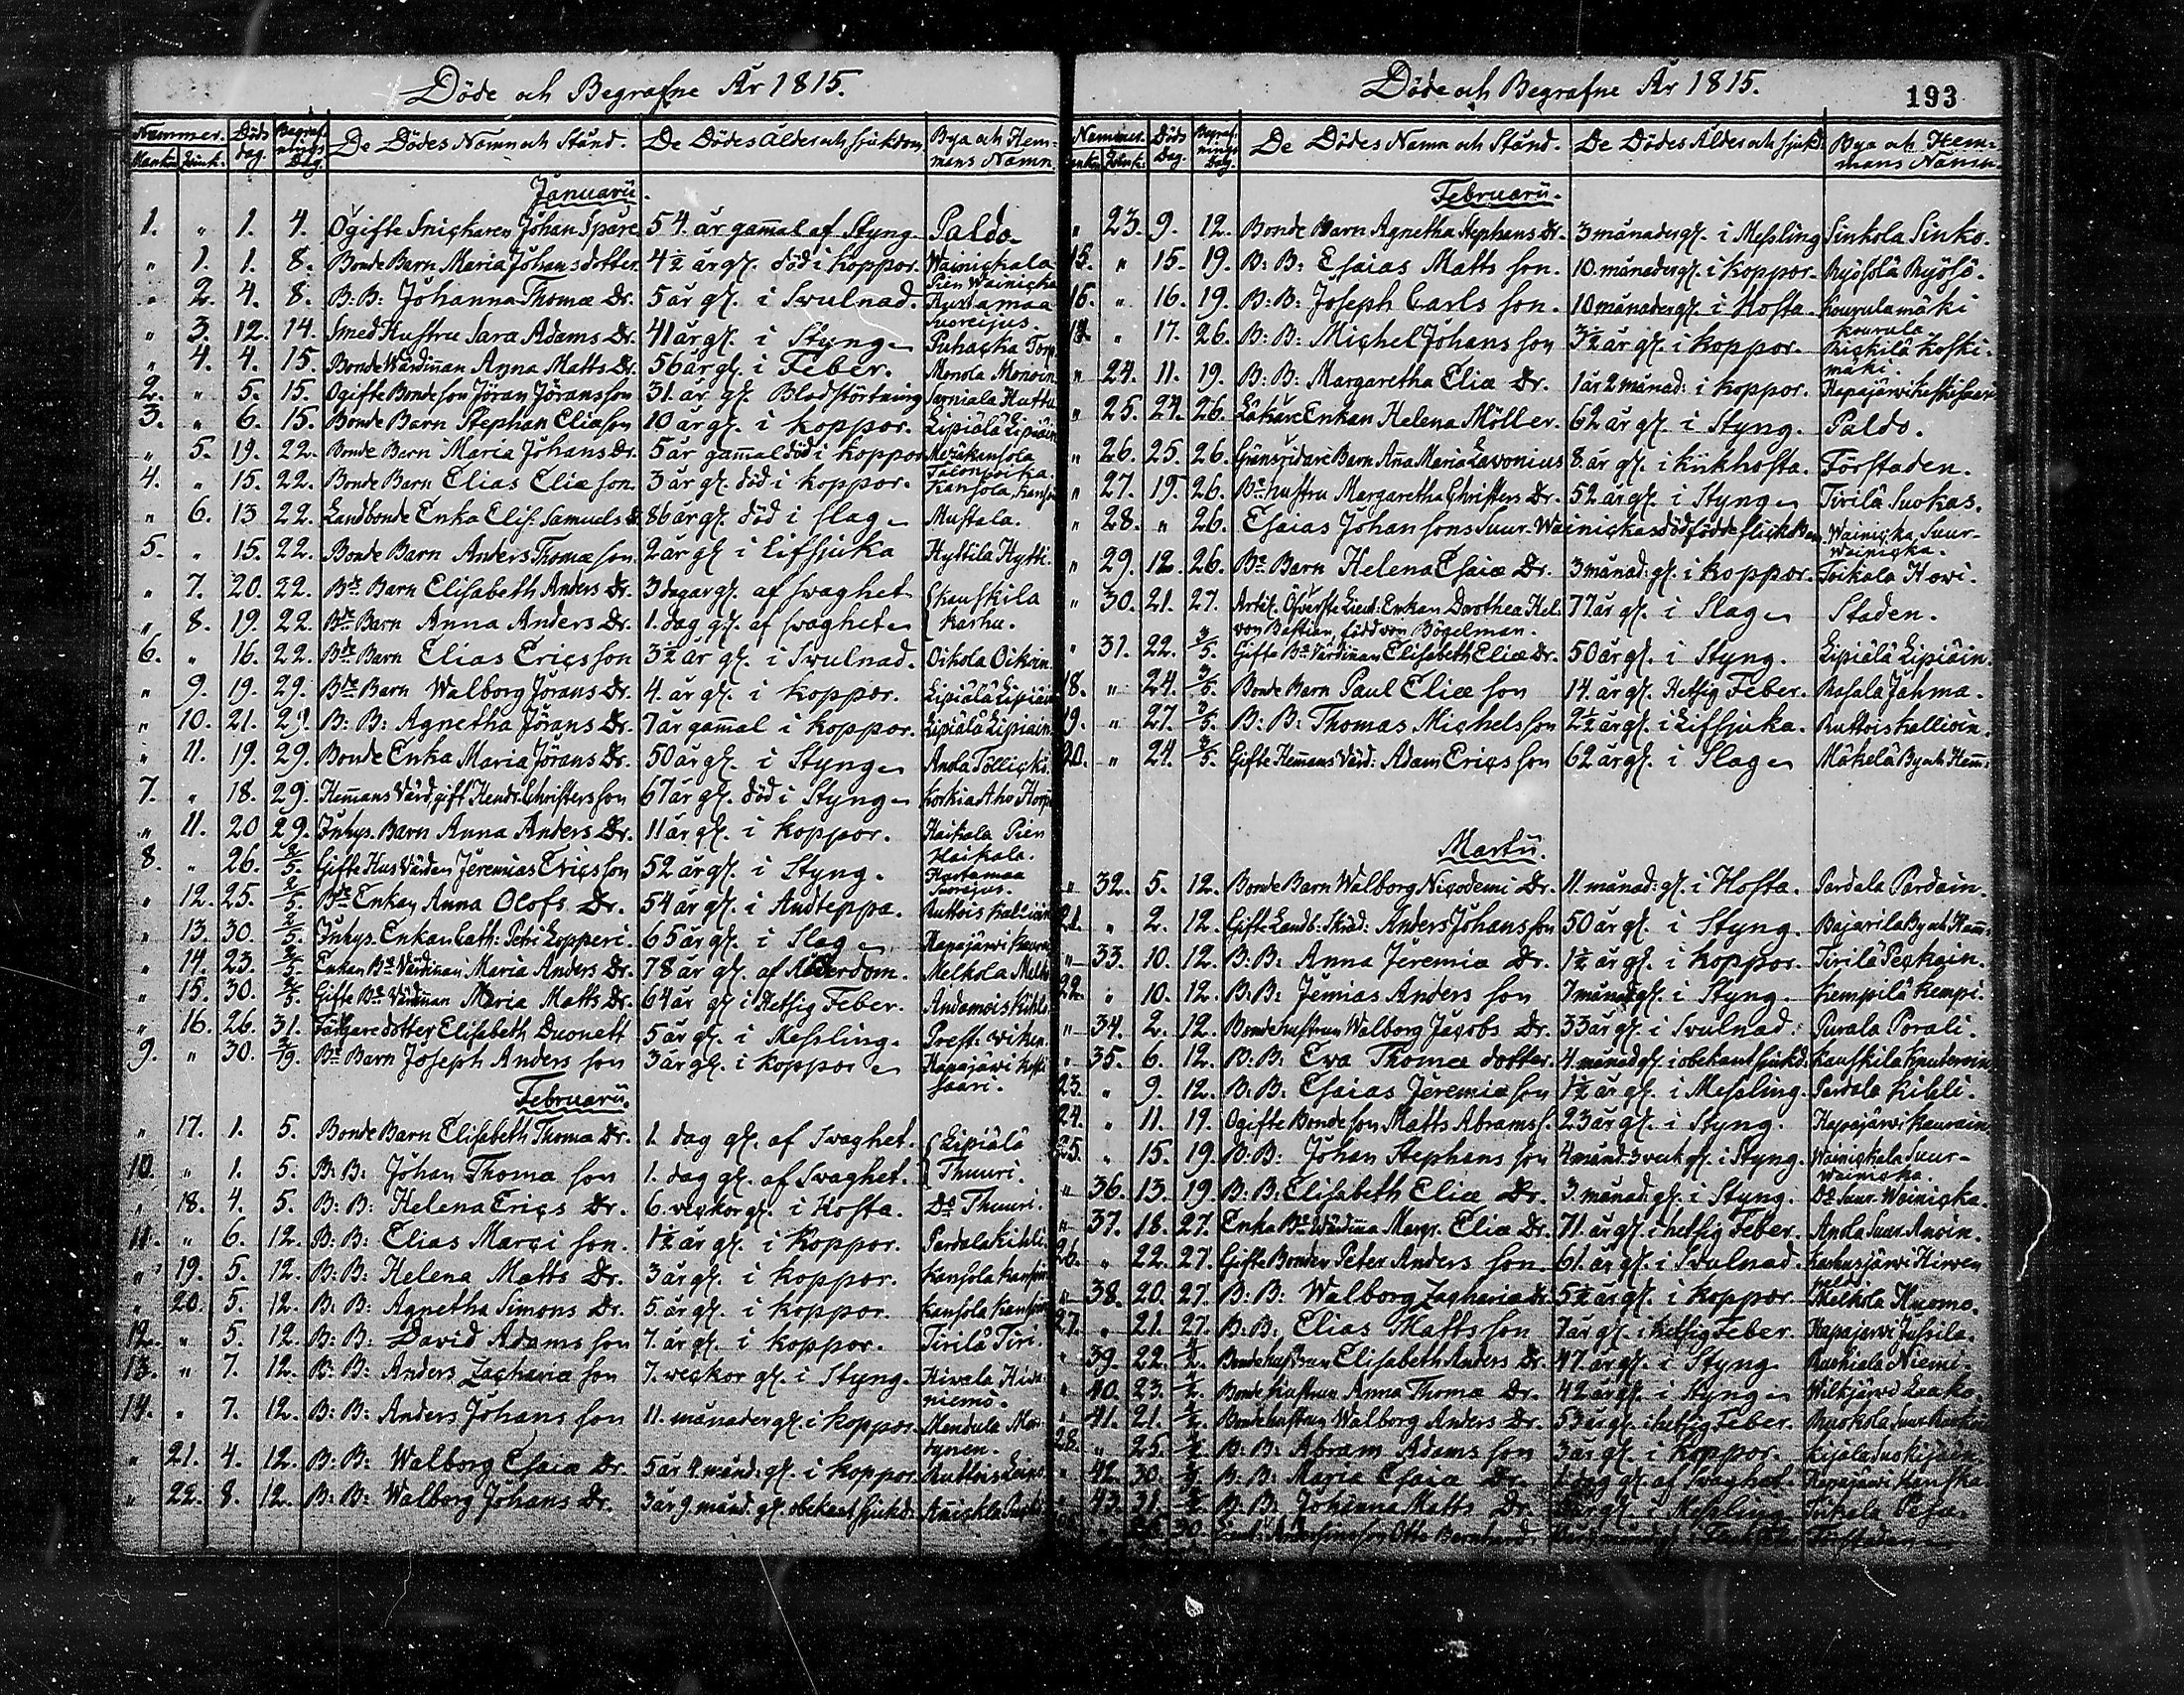 Döde och Begrafne År 1815.
Nummer. Döds dag. Begrafnings Dag. De Dödes Namn och Stånd. De Dödes Ålder och Sjukdom Bya och Hemmans Namn.
Mankön Qvink.
Januarii.
1. " 1. 4. Ogifte Snickaren Johan Spåre 54 år gam̄al af Styng. Paldo.
" 1. 1. 8. Bonde Barn Maria Johans dotter 4½ år gl. död i koppor. Wainickala Pien Wainicka
" 2. 4. 8. B: B: Johanna Thomæ Dr. 5 år gl. i Svulnad. Hurtamaa Suoreijus.
" 3. 12. 14. Smed Hustru Sara Adams Dr. 41 år gl. i Styng Puhacka Torp
" 4. 4. 15. Bonde Wärdin̄an Anna Matts Dr. 56 år gl. i Feber. Monola Monoin
2. " 5. 15. Ogifte Bonde son Jöran Jöransson 31. år gl. Blodstörtning Sarniala Huttu
3. " 6. 15. Bonde Barn Stephan Eliæson 10 år gl. i koppor. Lipiälä Lipiäin
" 5. 19. 22. Bonde Barn Maria Johans Dr. 5 år gam̄al död i koppor
4. " 15. 22. Bonde Barn Elias Eliæ son. 3 år gl. död i koppor. Kansola
" 6. 13 22. Landbonde Enka Elis: Samuels D. 86 år gl. död i slag Mustala.
5. " 15. 22. Bonde Barn Anders Thomæ son 2 år gl i Lifsjuka Hyttila Hytti
" 7. 20. 22. Bde Barn Elisabeth Anders Dr. 3 dagar gl. af swaghet Kauskila
" 8. 19 22. Bde Barn Anna Anders Dr. 1. dag gl. af swaghet Karhu.
6. " 16. 22. Bde Barn Elias Ericsson 3½ år gl. i Svulnad. Oikola Oikoin
" 9. 19. 29. Bde Barn Walborg Jörans Dr. 4. år gl. i koppor. Lipiälä Lipiäin
" 10. 21. 29. B: B: Agnetha Jörans Dr. 7 år gam̄al i koppor. Lipiälä Lipiäin
" 11. 19. 29. Bonde Enka Maria Jörans Dr. 50 år gl. i Styng Anola Töllicki
7. " 18. 29. Hem̄ans Värd gift Hendr. Christers son 67 år gl. död i Styng
" 11. 20 29. Inhys. Barn Anna Anders Dr. 11 år gl. i koppor. Haikala Pien Haikala.
8. " 26. 2/5. Gifte Hus Värden Jeremias Ericsson 52 år gl. i Styng. Hurtamaa
" 12. 25. 2/5. Bde Enkan Anna Olofs Dr. 54 år gl. i Andteppa. Ruttois Kallioin
" 13. 30. 2/5. Inhys. Enkan Cath: Petri Lopperi. 65 år gl. i Slag Hapajärwi
" 14. 23. 2/5. Enkan Bde Värdin̄an Maria Anders Dr. 78 år gl. af Ålderdom. Melkola
" 15. 30. 2/5. Gifte Bde Värdin̄an Maria Matts Dr. 64 år gl i Hetsig Feber.
" 16. 26. 31. Färgare dotter Elisabeth Duonett 5 år gl. i Messling.
9. " 30. 2/19. Bde Barn Joseph Anders son 3 år gl. i koppor Hapajärwi koski saari.
Februarii.
" 17. 1. 5. Bonde Barn Elisabeth Thomæ Dr. 1. dag gl. af Swaghet. Lipiälä
10. " 1. 5. B: B: Johan Thomæ son 1. dag gl. af Swaghet. Thuuri.
" 18. 4. 5. B: B: Helena Erics Dr. 6. veckor gl. i Hosta. Do Thuuri.
11. " 6. 12. B: B: Elias Marci son. 1½ år gl. i koppor. Pardala Kihli
" 19. 5. 12. B: B: Helena Matts Dr. 3 år gl. i koppor. Kansola
" 20. 5. 12. B: B: Agnetha Simons Dr. 5. år gl. i koppor. Kansola
12. " 5. 12. B: B: David Adams son 7. år gl. i koppor. Tirilä Tiri.
13. " 7. 12. B: B: Anders Zachariæ son 7. veckor gl. i Styng. niemo.
14. " 7. 12. B: B: Anders Johans son 11. månader gl. i koppor.
" 21. 4. 12. B: B: Walborg Esaiæ Dr. 5 år 4. månd: gl. i koppor.
" 22. 8. 12. B: B: Walborg Johans Dr. 3 år 9. månd. gl. obekant sjukd.
Döde och Begrafne År 1815.
193
Nummer. Döds Dag. Begrafnings Dag. De Dödes Namn och Stånd. De Dödes Ålder och Sjukd. Bya och Hemmans Namn
Februarii.
" 23. 9. 12. Bonde Barn Agnetha Stephans Dr. 3 månader gl. i Messling Sinkola Sinko.
15. " 15. 19. B: B: Esaias Matts son. 10. månader gl. i koppor
16. " 16. 19. B: B: Joseph Carls son. 10 månader gl. i Hosta. Kourula mäki kourula
" 17. 26. B: B: Michel Johans son 3½ år gl. i koppor. koskimäki.
" 24. 11. 19. B: B: Margaretha Eliæ Dr. 1 år 2 månad: i koppor. Hapajärwi
" 25. 24. 26. Enkan Helena Möller. 62 år gl. i Styng. Paldo.
" 26. 25. 26. Gränsridare Barn An̄a Maria Lavonius 8. år gl. i kikhosta. Förstaden.
" 27. 19. 26. Be hustru Margaretha Christers Dr. 52 år gl. i Styng Tirilä Suokas.
" 28. " 26. Esaias Johan sons Suur-Wainickas dödfödde flicka Barn. Wainicka Suur-wainicka.
" 29. 12. 26. Be Barn Helena Esaiæ Dr. 3 månad: gl. i koppor. Toikala Howi.
" 30. 21. 27. Artil. Öfverste Lieut: Enkan Dorothea Hel. 77 år gl. i Slag Staden.
von Bastian, född von Bögelman.
" 31. 22. 3/5. Gifte Be Värdin̄an Elisabeth Eliæ Dr. 50 år gl. i Styng. Lipiälä Lipiäin.
18. " 24. 3/5. Bonde Barn Paul Eliæ son 14. år gl. Hetsig Feber. Rasala Jähma.
19. " 27. 3/5. B: B: Thomas Michelsson 2½ år gl. i Lifsjuka. Ruttois Kallioin.
20. " 24. 3/5. Gifte Hem̄ans Värd: Adam Ericsson 62 år gl. i Slag Mäkelä By och Hem̄:
Martii.
" 32. 5. 12. Bonde Barn Walborg Nicodemi Dr. 11. månad: gl. i Hosta. Pardala Pardain.
21. " 2. 12. Gifte Landb: Anders Johans son 50 år gl. i Styng. Bajarila By och Hem̄:
" 33. 10. 12. B: B: Anna Jeremiæ Dr. 1½ år gl. i koppor. Tirilä Peckain.
22. " 10. 12. B: B: Jemias Anders son 7 månad gl. i Styng. Kempilä Kempi.
" 34. 2. 12. Bonde hustrun Walborg Jacobs Dr. 33 år gl. i Svulnad. Purala Porali.
" 35. 6. 12. B: B: Eva Thomæ dotter. 4. månad gl. i obekant sjukd. Kauskila
23. " 9. 12. B: B: Esaias Jeremiæ son 1½ år gl. i Messling. Pardala Kihli.
24. " 11. 19. Ogifte Bonde son Matts Abrams s. 23 år gl. i Styng. Hapajärwi Kaurain.
25. " 15. 19. B: B: Johan Stephans son 4 månd: 3 veck gl. i Styng. Wainickala Suur-Wainicka.
" 36. 13. 19. B: B: Elisabeth Eliæ Dr. 3. månad: gl. i Styng. Do Suur-Wainicka.
" 37. 18. 27. Enka Be Wärdin̄a Margr. Eliæ Dr. 71. år gl. i hetsig Feber. Anola Suur Anoin.
26. " 22. 27. Gifte Bonden Peter Anders son. 61. år gl. i Svulnad.
" 38. 20. 27. B: B: Walborg Zachariæ Dr. 5½ år gl. i koppor Melkola Huomo.
27. " 21. 27. B: B: Elias Matts son 7 år gl. i hetsig Feber. Hapajärwi Jussila.
" 39. 22. Bonde hustrun Elisabeth Anders Dr. 47. år gl. i Styng Niemi.
" 40. 23. Bonde hustrun Anna Thomæ Dr. 42 år gl. i Styng Wilkjärwi Laako.
" 41. 21. Bonde hustrun Walborg Anders Dr. 53 år gl. i hetsig Feber.
28. " 25. B: B: Abram Adams son 3 år gl. i koppor.
" 42. 30. B: B: Maria Esaiæ Dr. 1 dag gl. af Swaghet. Hapajärwi
" 43. 31. B: B: Johanna Matts Dr. år gl. i Messling
30. Otto Bernhard.